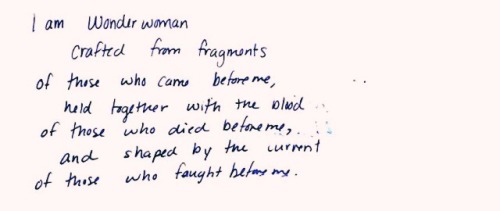 I am Wonder woman
crafted from fragments
of those who came before me,
held together with the blood
of those who died before me,
and shaped by the current
of those who fought before me.